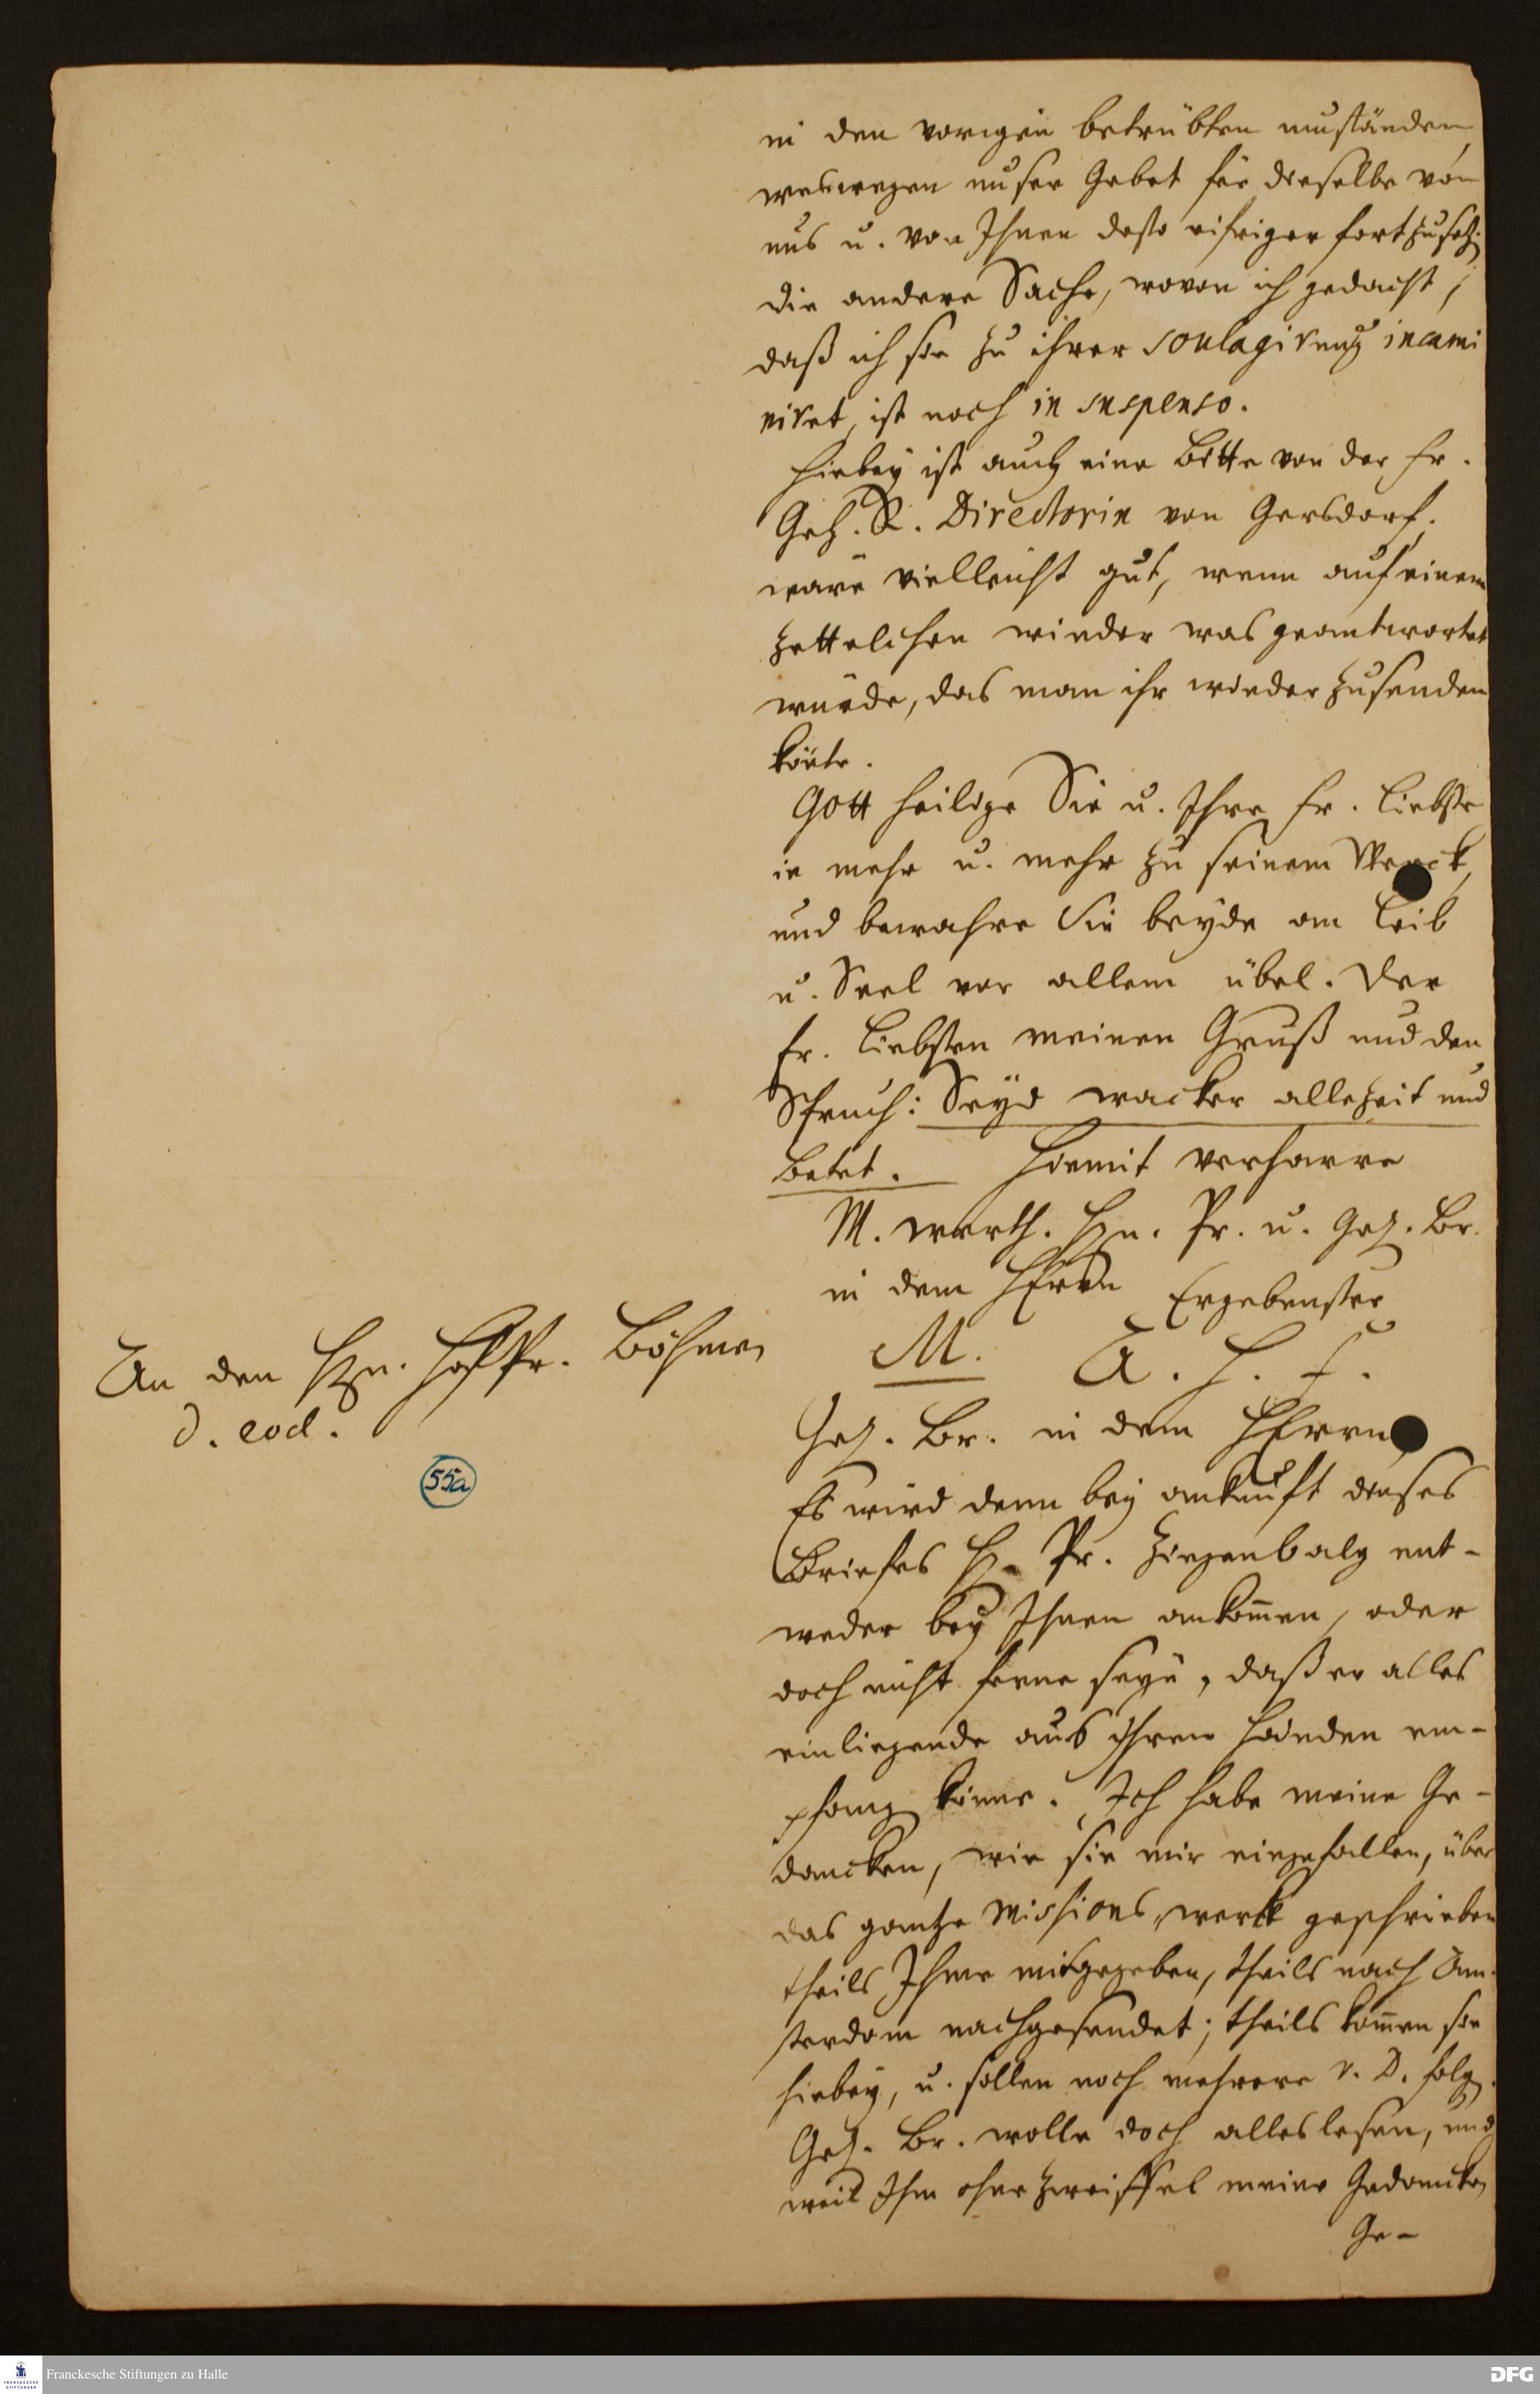 in den vorigen betrübten umständen,
weswegen unser Gebet für dieselbe von
uns u. von Ihnen desto eifriger fortzusetz.
die andere Sache, wovon ich gedacht,
daß ich sie zu ihrer soulagirung incami
niret, ist noch in suspenso.
Hiebey ist auch eine Bitte von der Fr.
Geh. R. Directorin von Gersdorf.
wäre vielleicht gut, wenn auf einem
Zettelchen wieder was geantwortet
würde, das man ihr wieder zusenden
könte.
Gott heilige Sie u. Ihre Fr. Liebste
ie mehr u. mehr zu seinem Werck,
und bewahre Sie beyde am Leib
u. Seel vor allem übel. Der
Fr. Liebsten meinen Gruß und den
Spruch: Seyd wacker allezeit und
betet. Hiemit verharre
M. werth. Hn. Pr. u. Gel. Br.
in dem HErrn Ergebenster
M. A. H. F.
An den Hn. HofPr. Böhmen
d. eod.
55a
Gel. Br. in dem HErrn
Es wird denn bey ankunft dieses
Briefes H. Pr. Ziegenbalg ent-
weder bey Ihnen ankommen, oder
doch nicht ferne seyn, daß er alles
einliegende aus Ihren Händen em-
pfang könne. Ich habe meine Ge-
dancken, wie sie mir eingefallen, über
das gantze Missions-werck geschrieben
theils Ihme mitgegeben, theils nach Am-
sterdam nachgesendet; theils kommen sie
hiebey, u. sollen noch mehrere v. D. folg.
Gel. Br. wolle doch alles lesen, und
weil Ihm ohne Zweiffel meine Gedancken
Ge-
Franckesche Stiftungen zu Halle
DFG